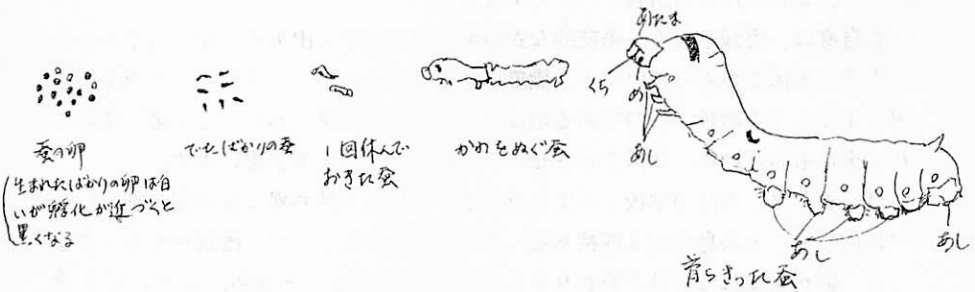 蚕の卵
(生まれたばかりの卵は白
いが孵化が近づくと
黒くなる
でたばかりの蚕
1回休んで
おきた蚕
かわをぬぐ蚕
あたま
くち
め
あし
あし
あし
育ちきった蚕